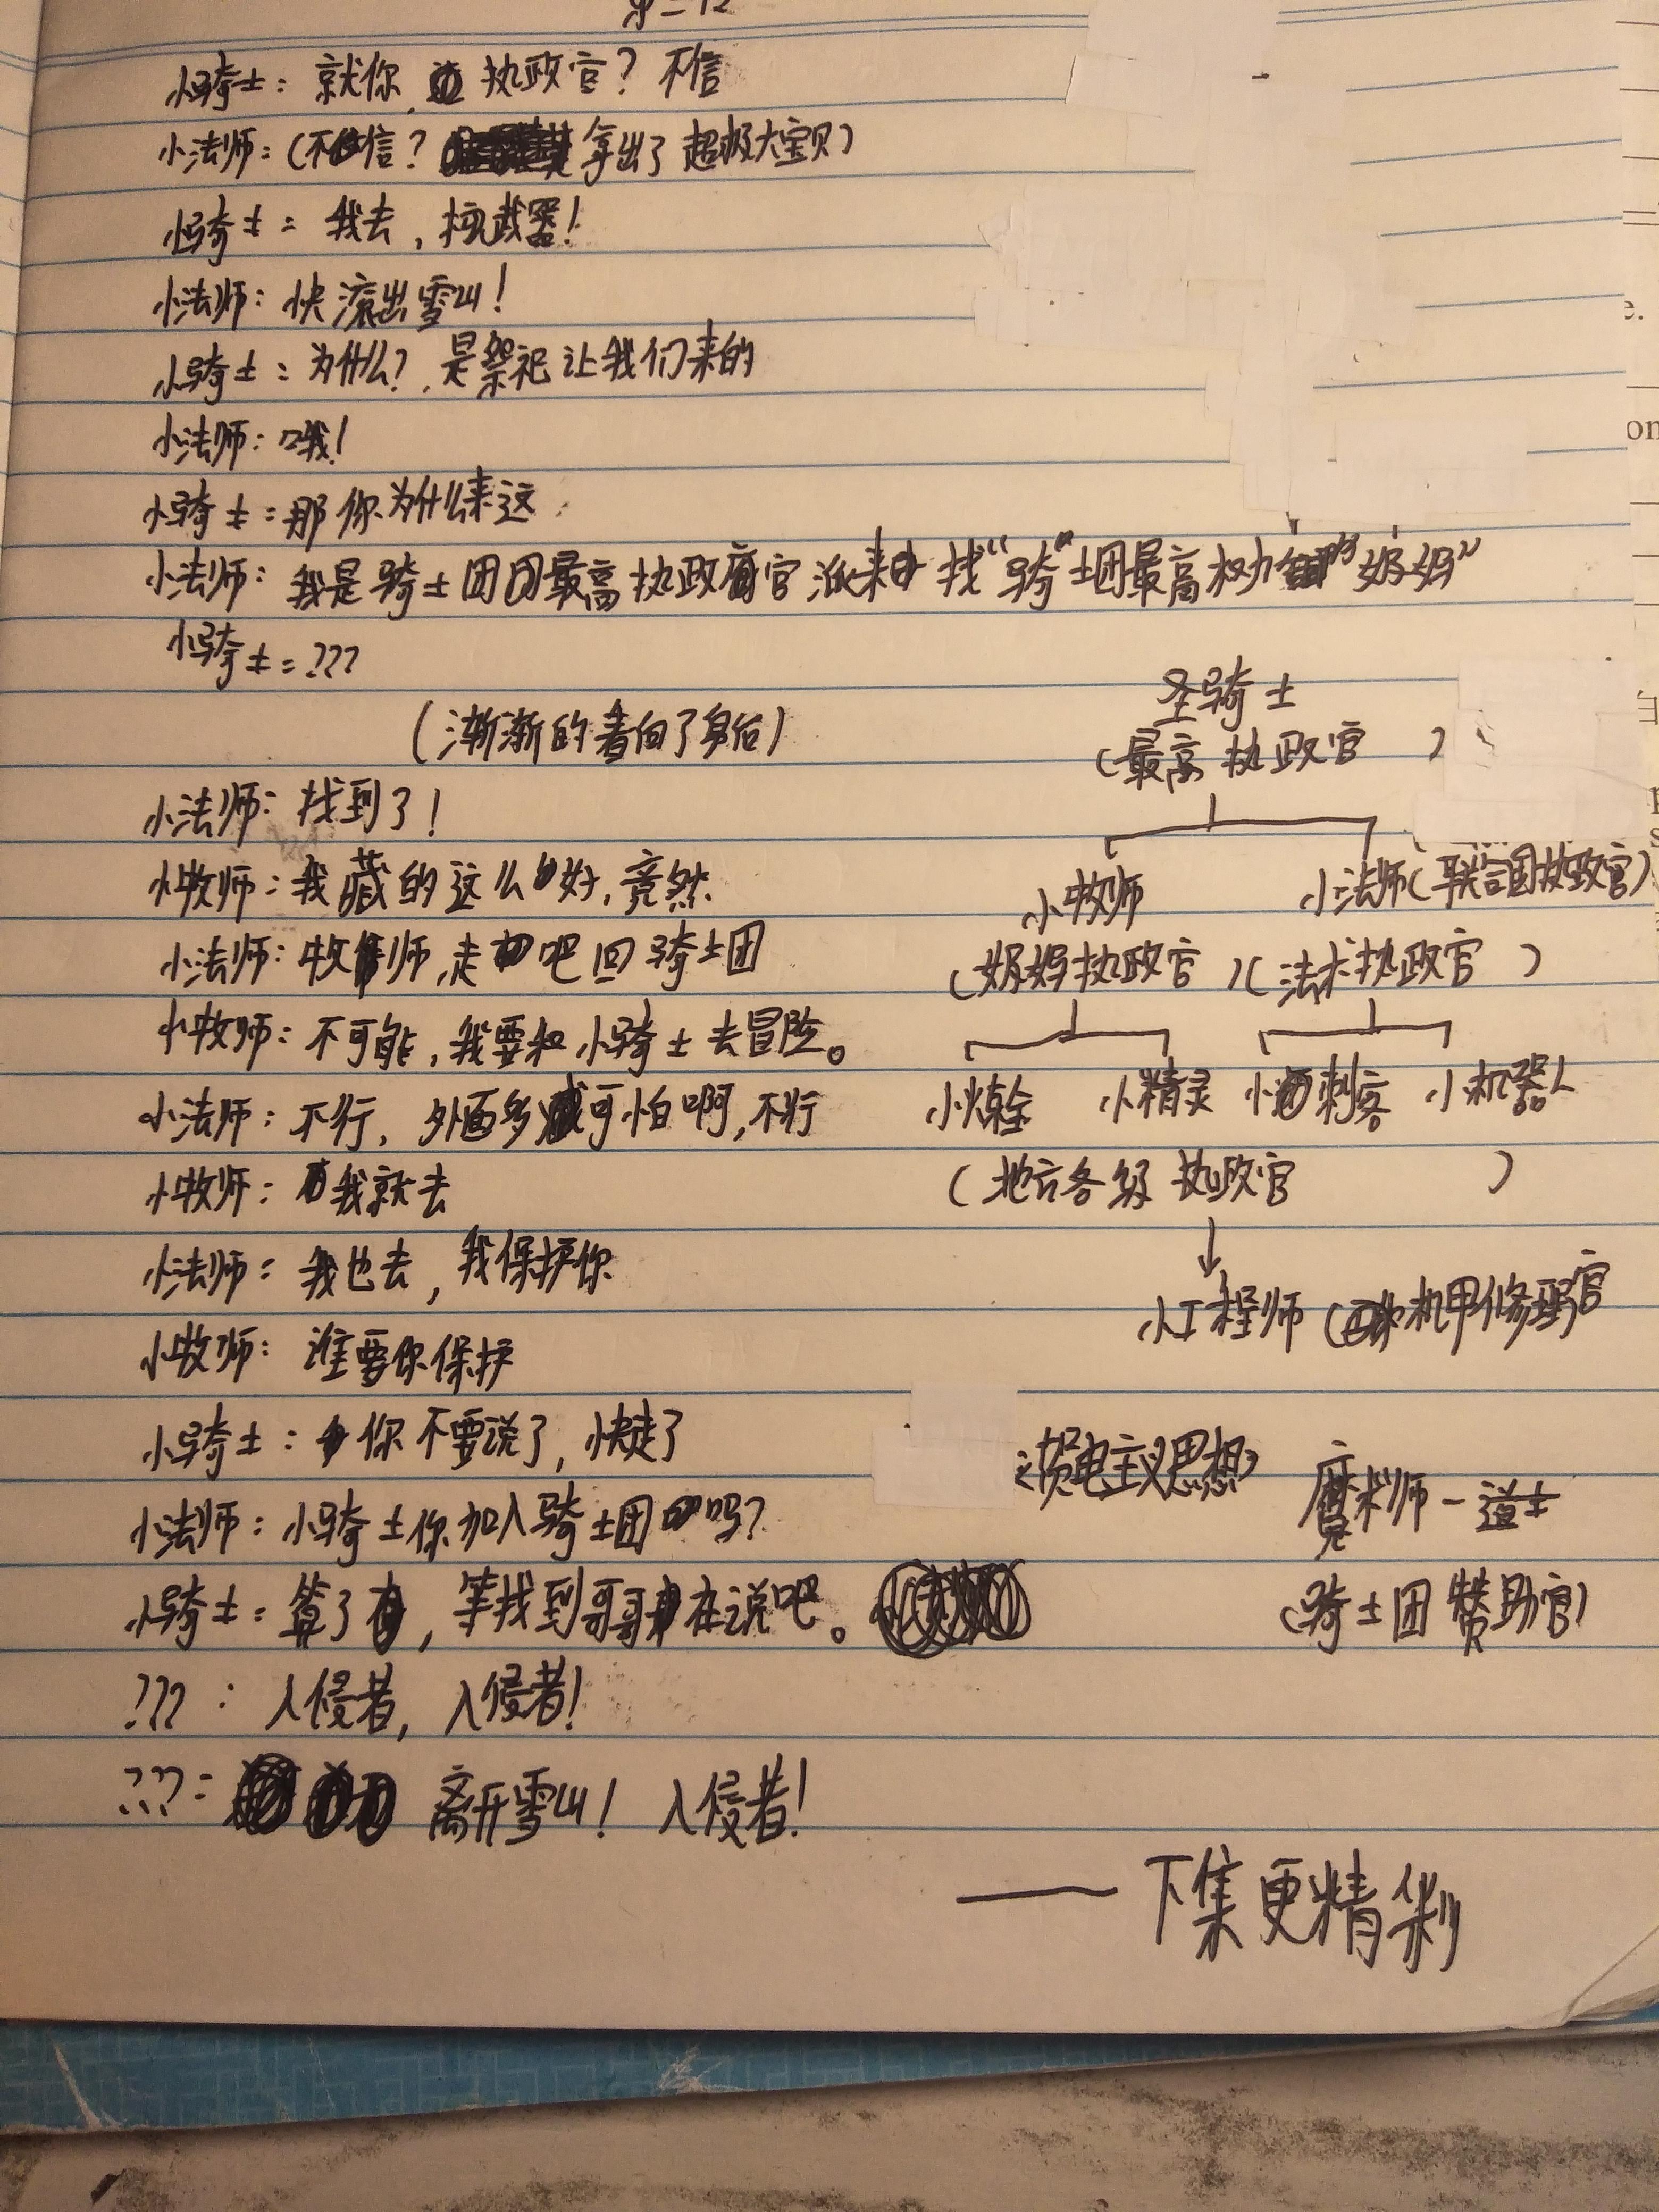 小骑士：就你，执政官？不信
小法师：（不信？拿出了超级大宝贝）
小骑士：我去，核武器！
小法师：快滚出雪山！
小骑士：为什么？是祭祀让我们来的
小法师：哦！
小骑士：那你为什么来这
小法师：我是骑士团最高执政官派来找“骑”士团最高权力“奶妈”
小骑士：???
（渐渐的看向了身后）
小法师：找到了！
小牧师：我藏的这么好，竟然
小法师：牧师，走吧回骑士团
小牧师：不可能，我要和小骑士去冒险。
小法师：不行，外面多可怕啊，不行
小牧师：我就去
小法师：我也去，我保护你
小牧师：谁要你保护
小骑士：你不要说了，快走了
小法师：小骑士你加入骑士团吗？
小骑士：算了，等找到哥哥在说吧。
???：入侵者，入侵者！
???：离开雪山！入侵者！
——下集更精彩
圣骑士
（最高执政官）
小牧师 小法师（联合国执政官）
（奶妈执政官）（法术执政官）
小炼金 小精灵 小刺客 小机器人
（地方各级执政官）
小工程师（机甲修理官
主义思想
魔术师－道士
（骑士团赞助官）